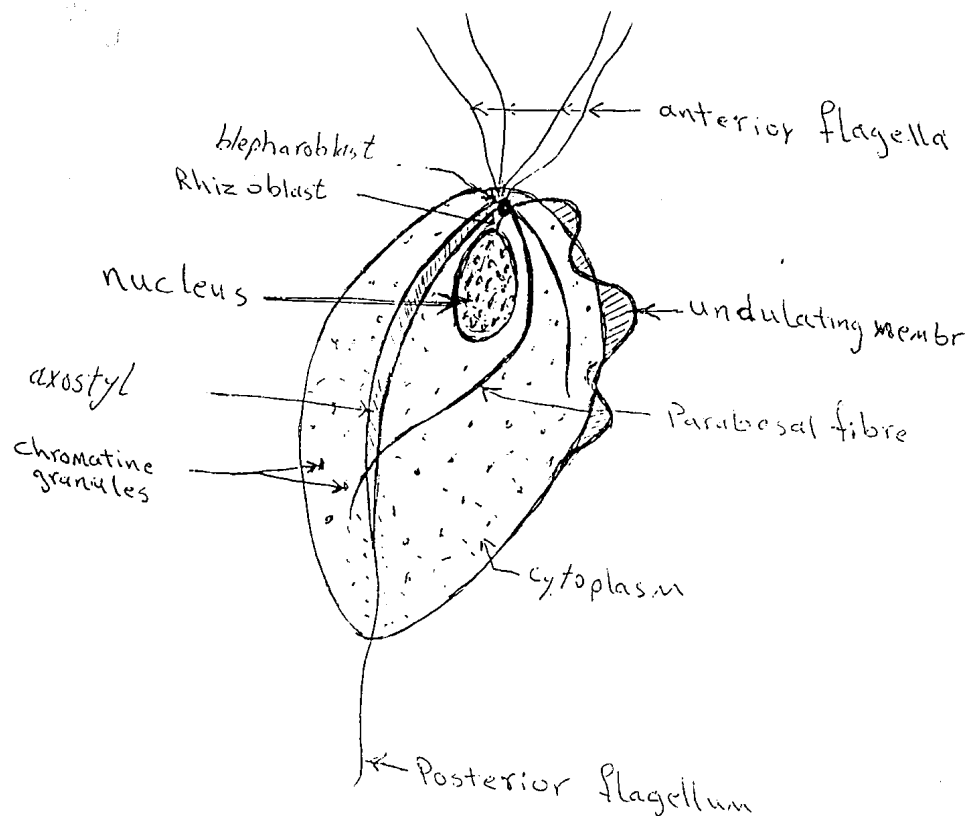 anterior flagella
blepharoblast
Rhizoblast
nucleus
undulating membr
axostyl
Parabasal fibre
chromatine
granules
cytoplasm
Posterior flagellum